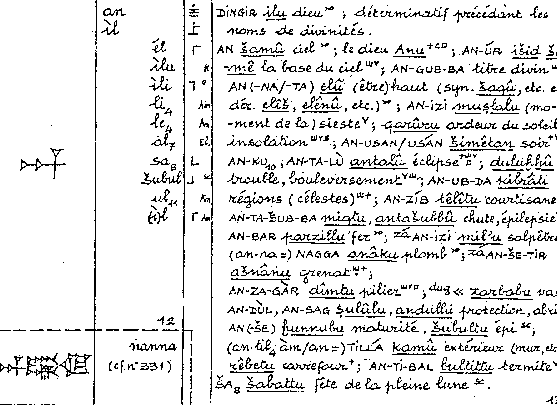 an DINGIR ilu dieu ; déterminatif précédant les
ìl noms de divinités.
él AN šamû ciel ; le dieu Anu ; AN-ÚR išid
ilu mê la base du ciel ; AN-GUB-BA titre divin
ìli AN(-NA/-TA) elû (être) haut (syn. šaqû, etc.
li₄ dér. eliš, elēnû, etc.) ; AN-IZI muṣlalu (mo-
le₄ ment de la) sieste ; qarūru ardeur du soleil
àl₇ insolation ; AN-USAN/USÁN šimētan soir
sa₈ AN-KU₁₀ ; AN-TA-LÙ antalû éclipse ; dulukhû
šubul trouble, bouleversement ; AN-UB-DA kibrāti
ul₁₁ régions (célestes) ; AN-ZÍB têlītu courtisane
til AN-TA-ŠUB-BA miqtu, antašubbû chute, épilepsie
AN-BAR parzillu fer ; zá AN-IZI mil'u salpêtre
(an-na=) NAGGA anāku plomb ; zá AN-ŠE-TIR
ašnānu grenat ;
AN-ZA-GÀR dimtu pilier ; dug « zarbabu
AN-DÙL, AN-SAG ṣulūlu, andullû protection,
12 AN(-ŠE) ḫunnubu maturité, šubultu épi ;
nanna (an-til₄/àm/an=) TILLÁ kamû extérieur (mur,
(cf. n° 331) rêbetu carrefour ; AN-TI-BAL bultittu termite
ŠA₈ šabattu fête de la pleine lune